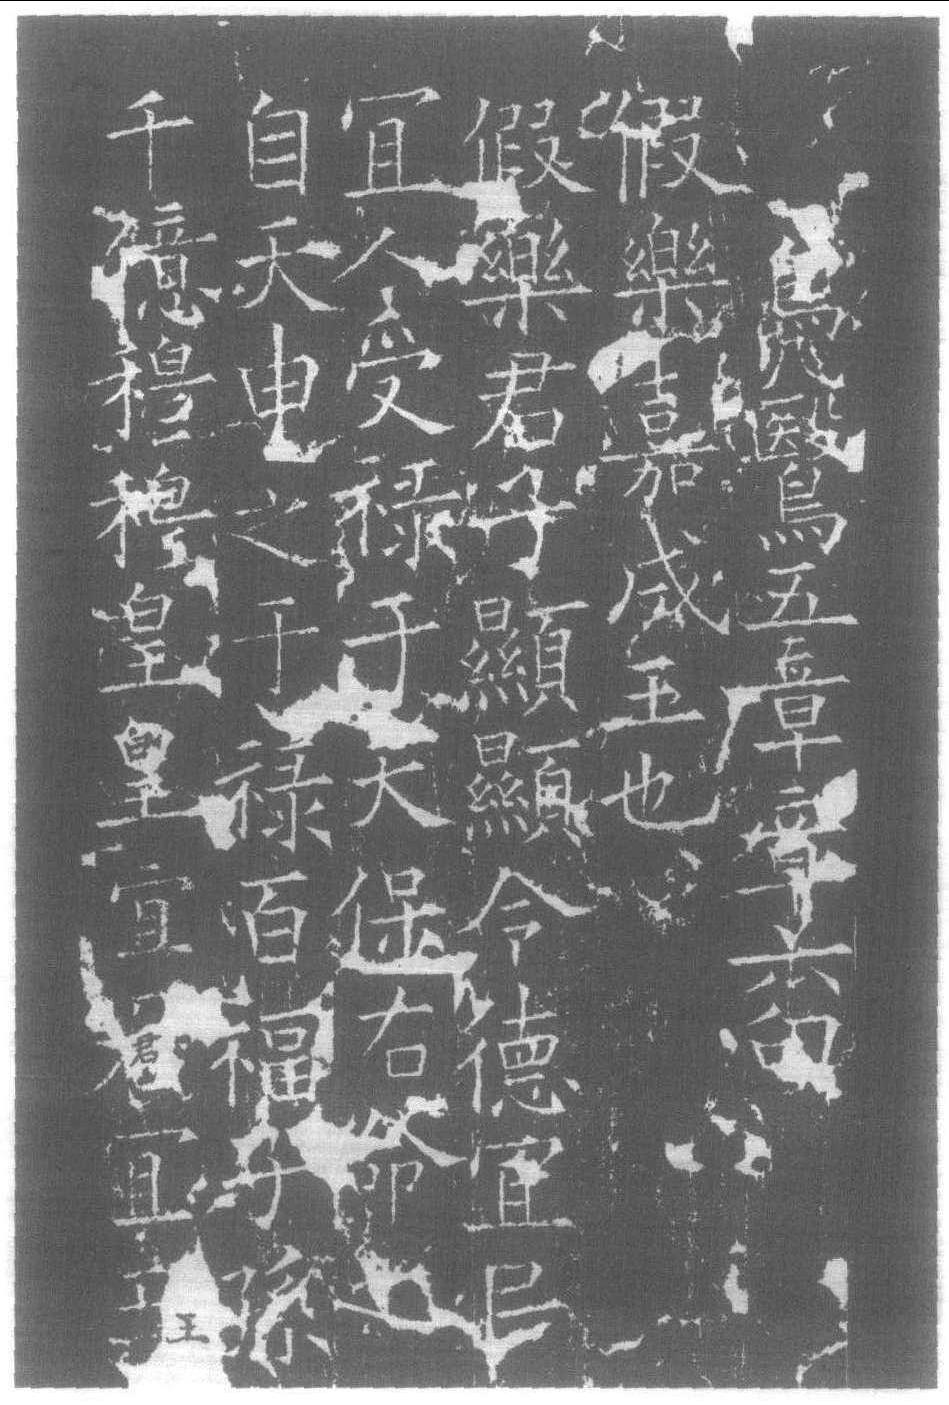 鳧鷖五章章六句
假樂嘉成王也
假樂君子顯顯令德宜民
宜人受祿于天保右命之
自天申之干祿百福子孫
千億穆穆皇皇宜君宜王